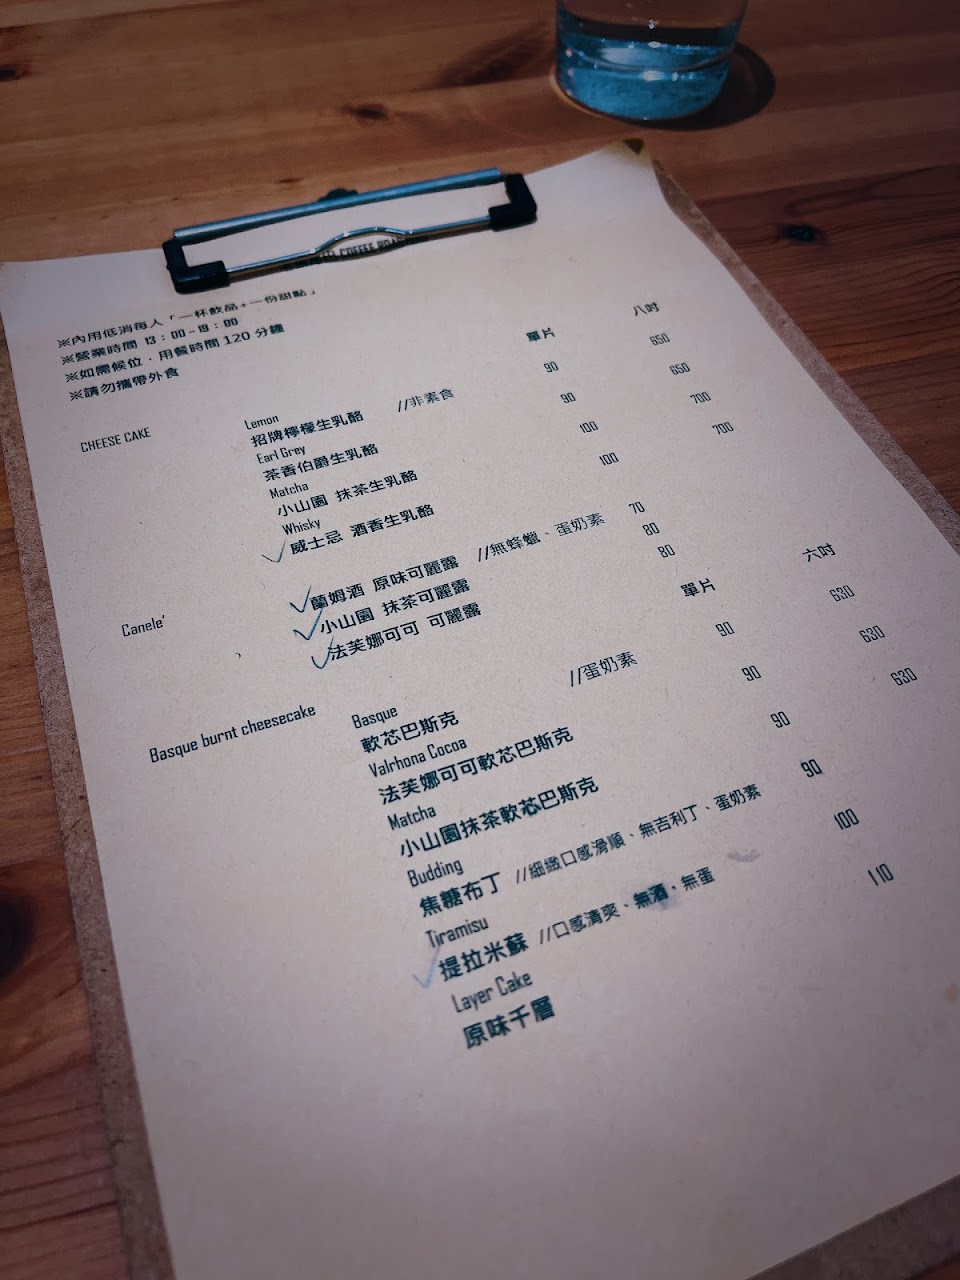 COFFEE ROA
※內用低消每人「一杯飲品+一份甜點」
※營業時間 13：00-19：00
※如需候位，用餐時間 120 分鐘
※請勿攜帶外食
單片 八吋
CHEESE CAKE
Lemon
招牌檸檬生乳酪 //非素食 90 650
Earl Grey
茶香伯爵生乳酪 90 650
Matcha
小山園 抹茶生乳酪 100 700
Whisky
威士忌 酒香生乳酪 100 700
Canele'
蘭姆酒 原味可麗露 //無蜂蠟、蛋奶素 70
小山園 抹茶可麗露 80
法芙娜可可 可麗露 80
單片 六吋
Basque burnt cheesecake //蛋奶素
Basque
軟芯巴斯克 90 630
Valrhona Cocoa
法芙娜可可軟芯巴斯克 90 630
Matcha
小山園抹茶軟芯巴斯克 90 630
Budding
焦糖布丁 //細緻口感滑順、無吉利丁、蛋奶素 90
Tiramisu
提拉米蘇 //口感清爽、無酒，無蛋 100
Layer Cake
原味千層 110